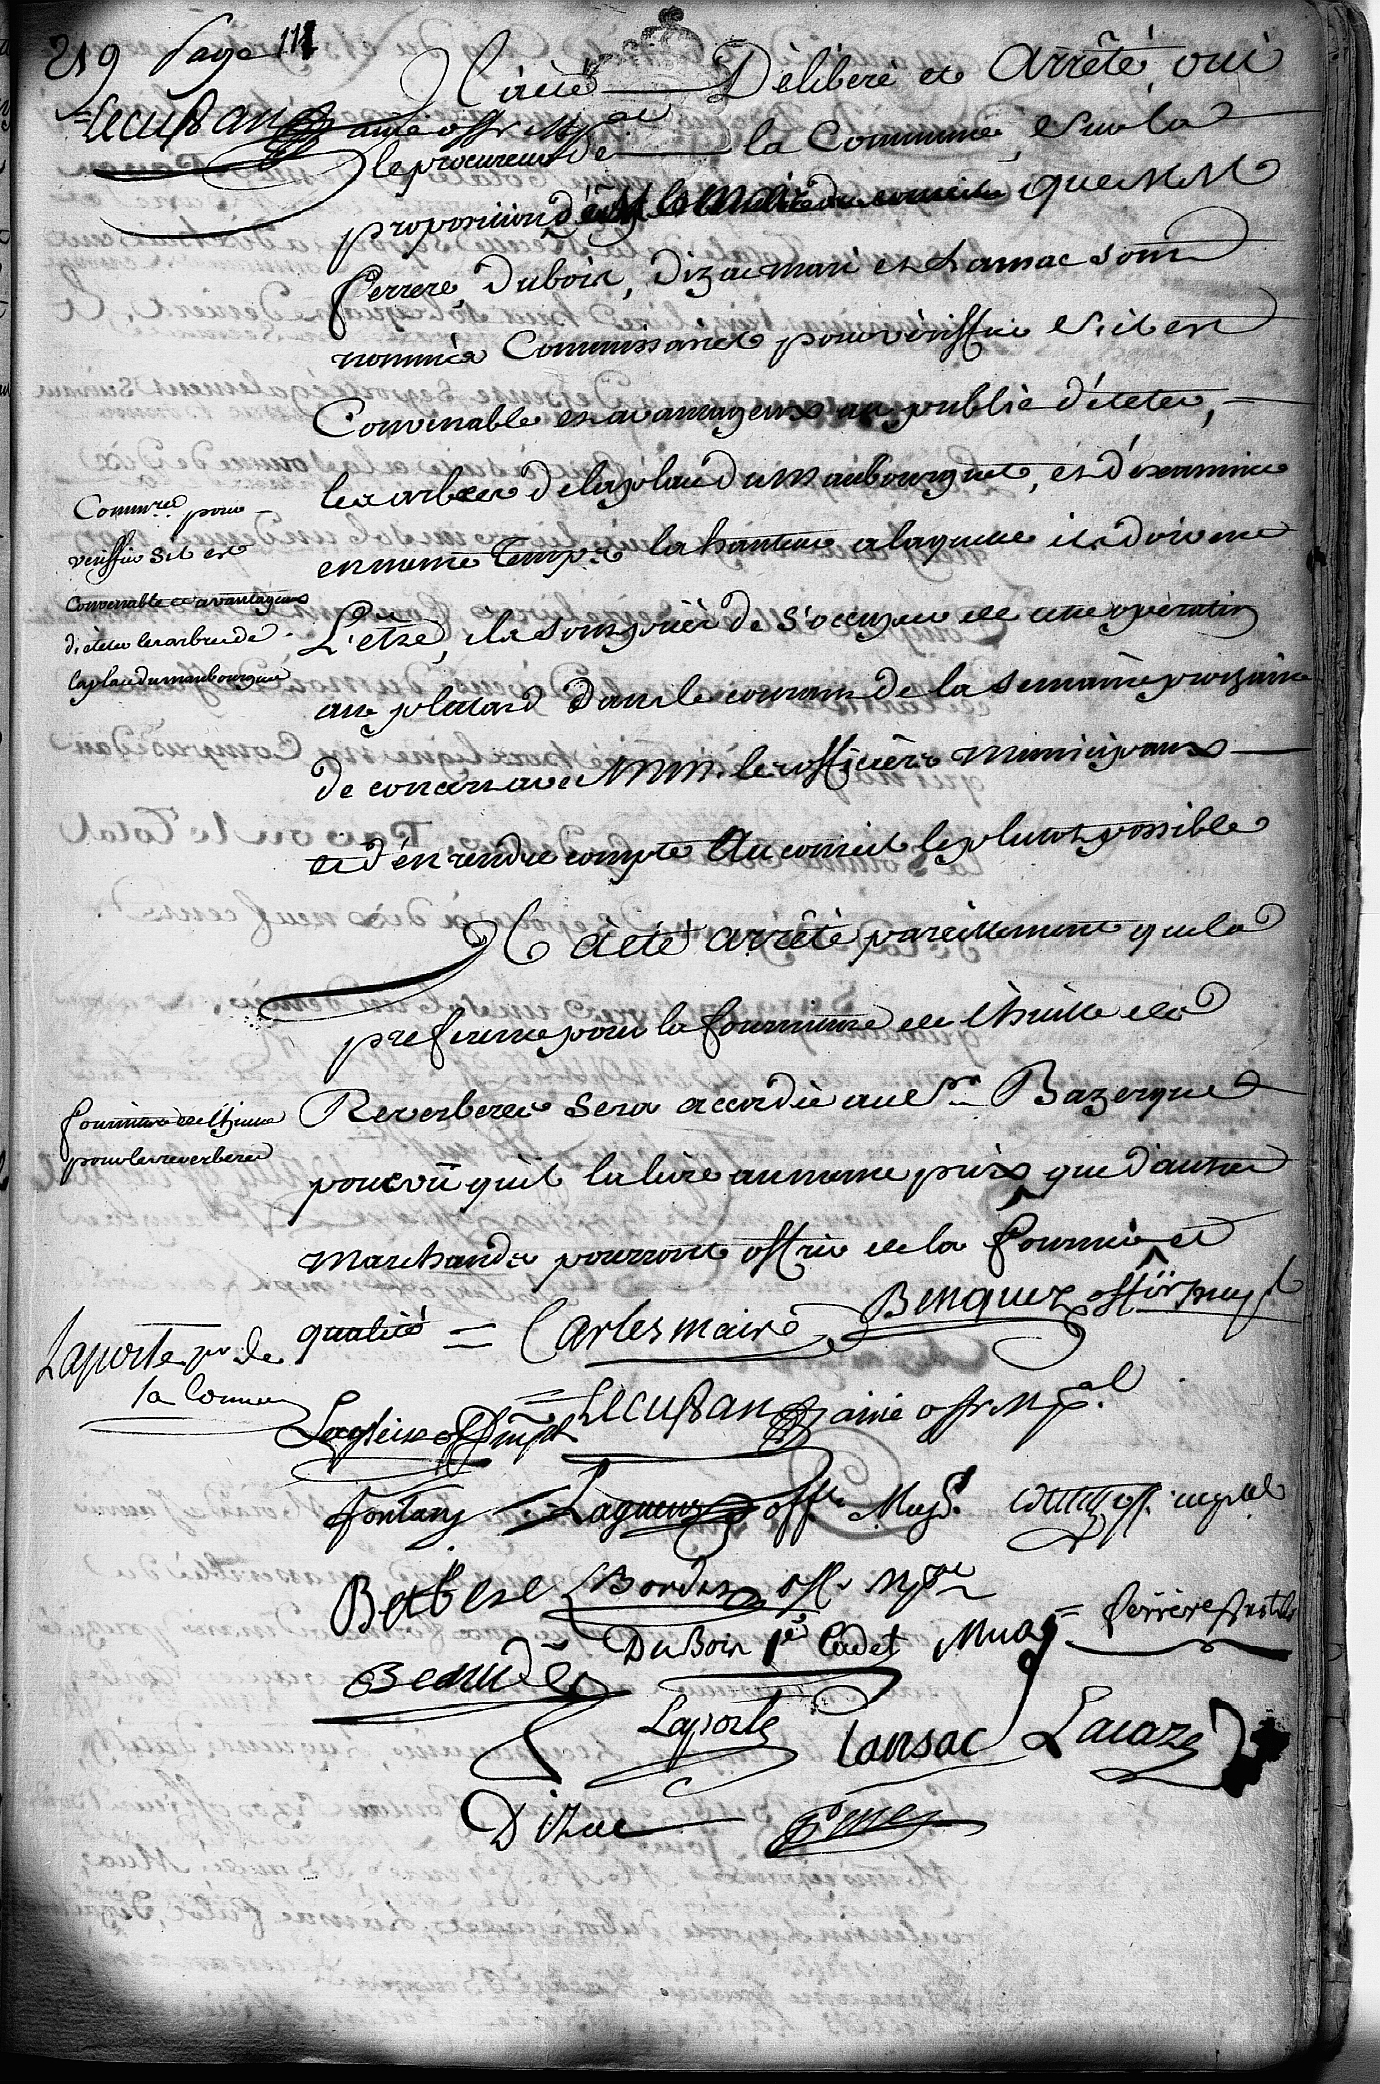 219 Page 111
Lecussan ainé offr. Mpal
Il a été Délibéré et Arrêté, oui
le procureur de la Commune, & sur la
proposition que MM
ferrere, Dubois, Dizac mari et Lansac sont
nommés Commissaires pour vérifier s'il est
Convenable et avantageux au public d'éteter,
les arbres de la place du Maubourguet, et d'examiner
en meme temps la hauteur a laquelle ils doivent
L'être, ils sont priés de s'occuper de cette opération
au plutard dans le courant de la semaine prochaine
de concert avec MM. les officiers Municipaux
et d'en rendre compte au conseil le plutot possible
Commres. pour
veriffier s'il est
Convenable et avantageux
d'éteter les arbres de
la place du maubourguet
Il à été arrêté pareillement que la
preference pour la fourniture de l'huille des
Reverberes sera accordée au Sr. Bazerque
pourvû qu'il la livre au meme prix que d'autres
Marchands pourront offrir de la fournir et
qualité =
fourniture de l'huille
pour les reverberes
Carles maire Benquez offir mupl
Laporte pr. de
la Comune
= Lecussan ainé offr Mpal.
fontan Lagueux offr. Mupl.
Betbese Bordes off. Mpal
DuBois 1er Cadet Muas ferrere
Laporte Lansac Lacaze
Dizac